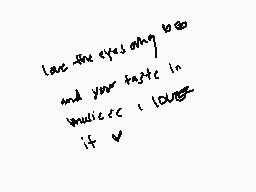 love the eyes omg
and your taste in
musiccc i loveee
it ♥